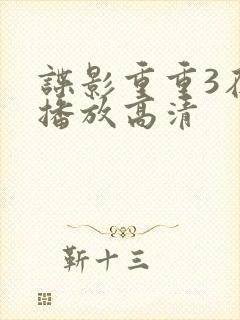 諜影重重3在
播放高清
靳十三